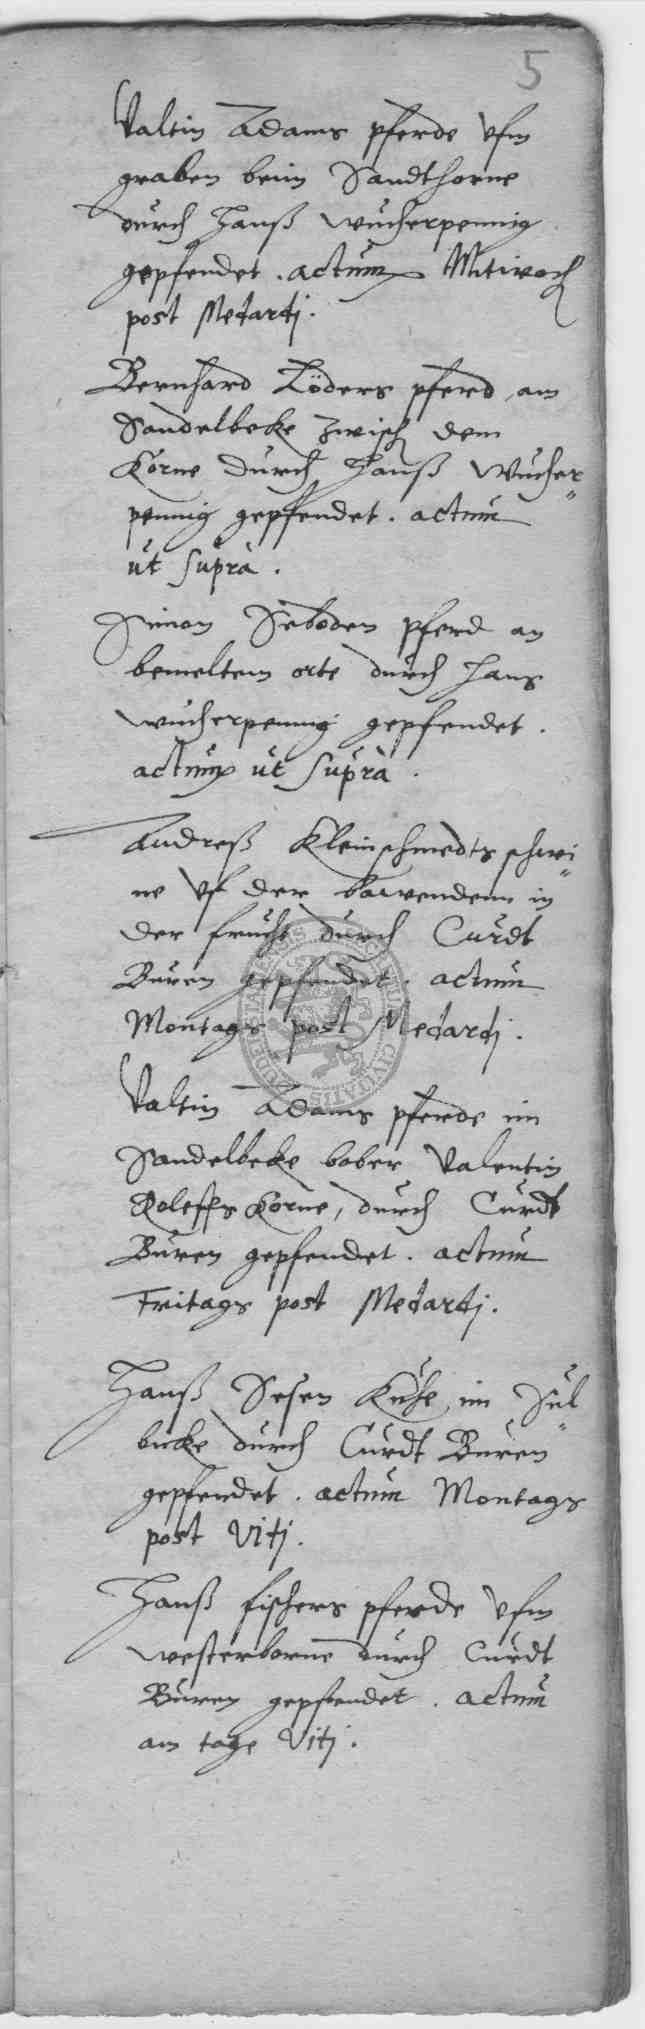 5
Valtin Adams pferde vfm
graben beim Sandthorne
durch Hanß Wucherpennig
gepfendet. actum Mitwoch
post Medardj.
Bernhard Töders pferd am
Sandelbeke zwisch dem
Korne durch Hanß Wucher
pennig gepfendet. actum
ut suprà.
Simon Seboden pferd an
bemeltem orte durch Hans
Wucherpennig gepfendet.
actum ut suprà.
Andreß Kleinschmedts schwi
ne vf der in
der frucht durch Curdt
Buren gepfendet. actum
Montags post Medardj.
Valtin Adams pferde im
Sandelbeke bober Valentin
Roleffs Korne, durch Curdt
Buren gepfendet. actum
Fritags post Medardj.
Hanß Sesen Kuhe im Sül
beke durch Curdt Buren
gepfendet. actum Montags
post Vitj.
Hanß fischers pferde vfm
westerborne durch Curdt
Buren gepfendet. actum
am tage Vitj.